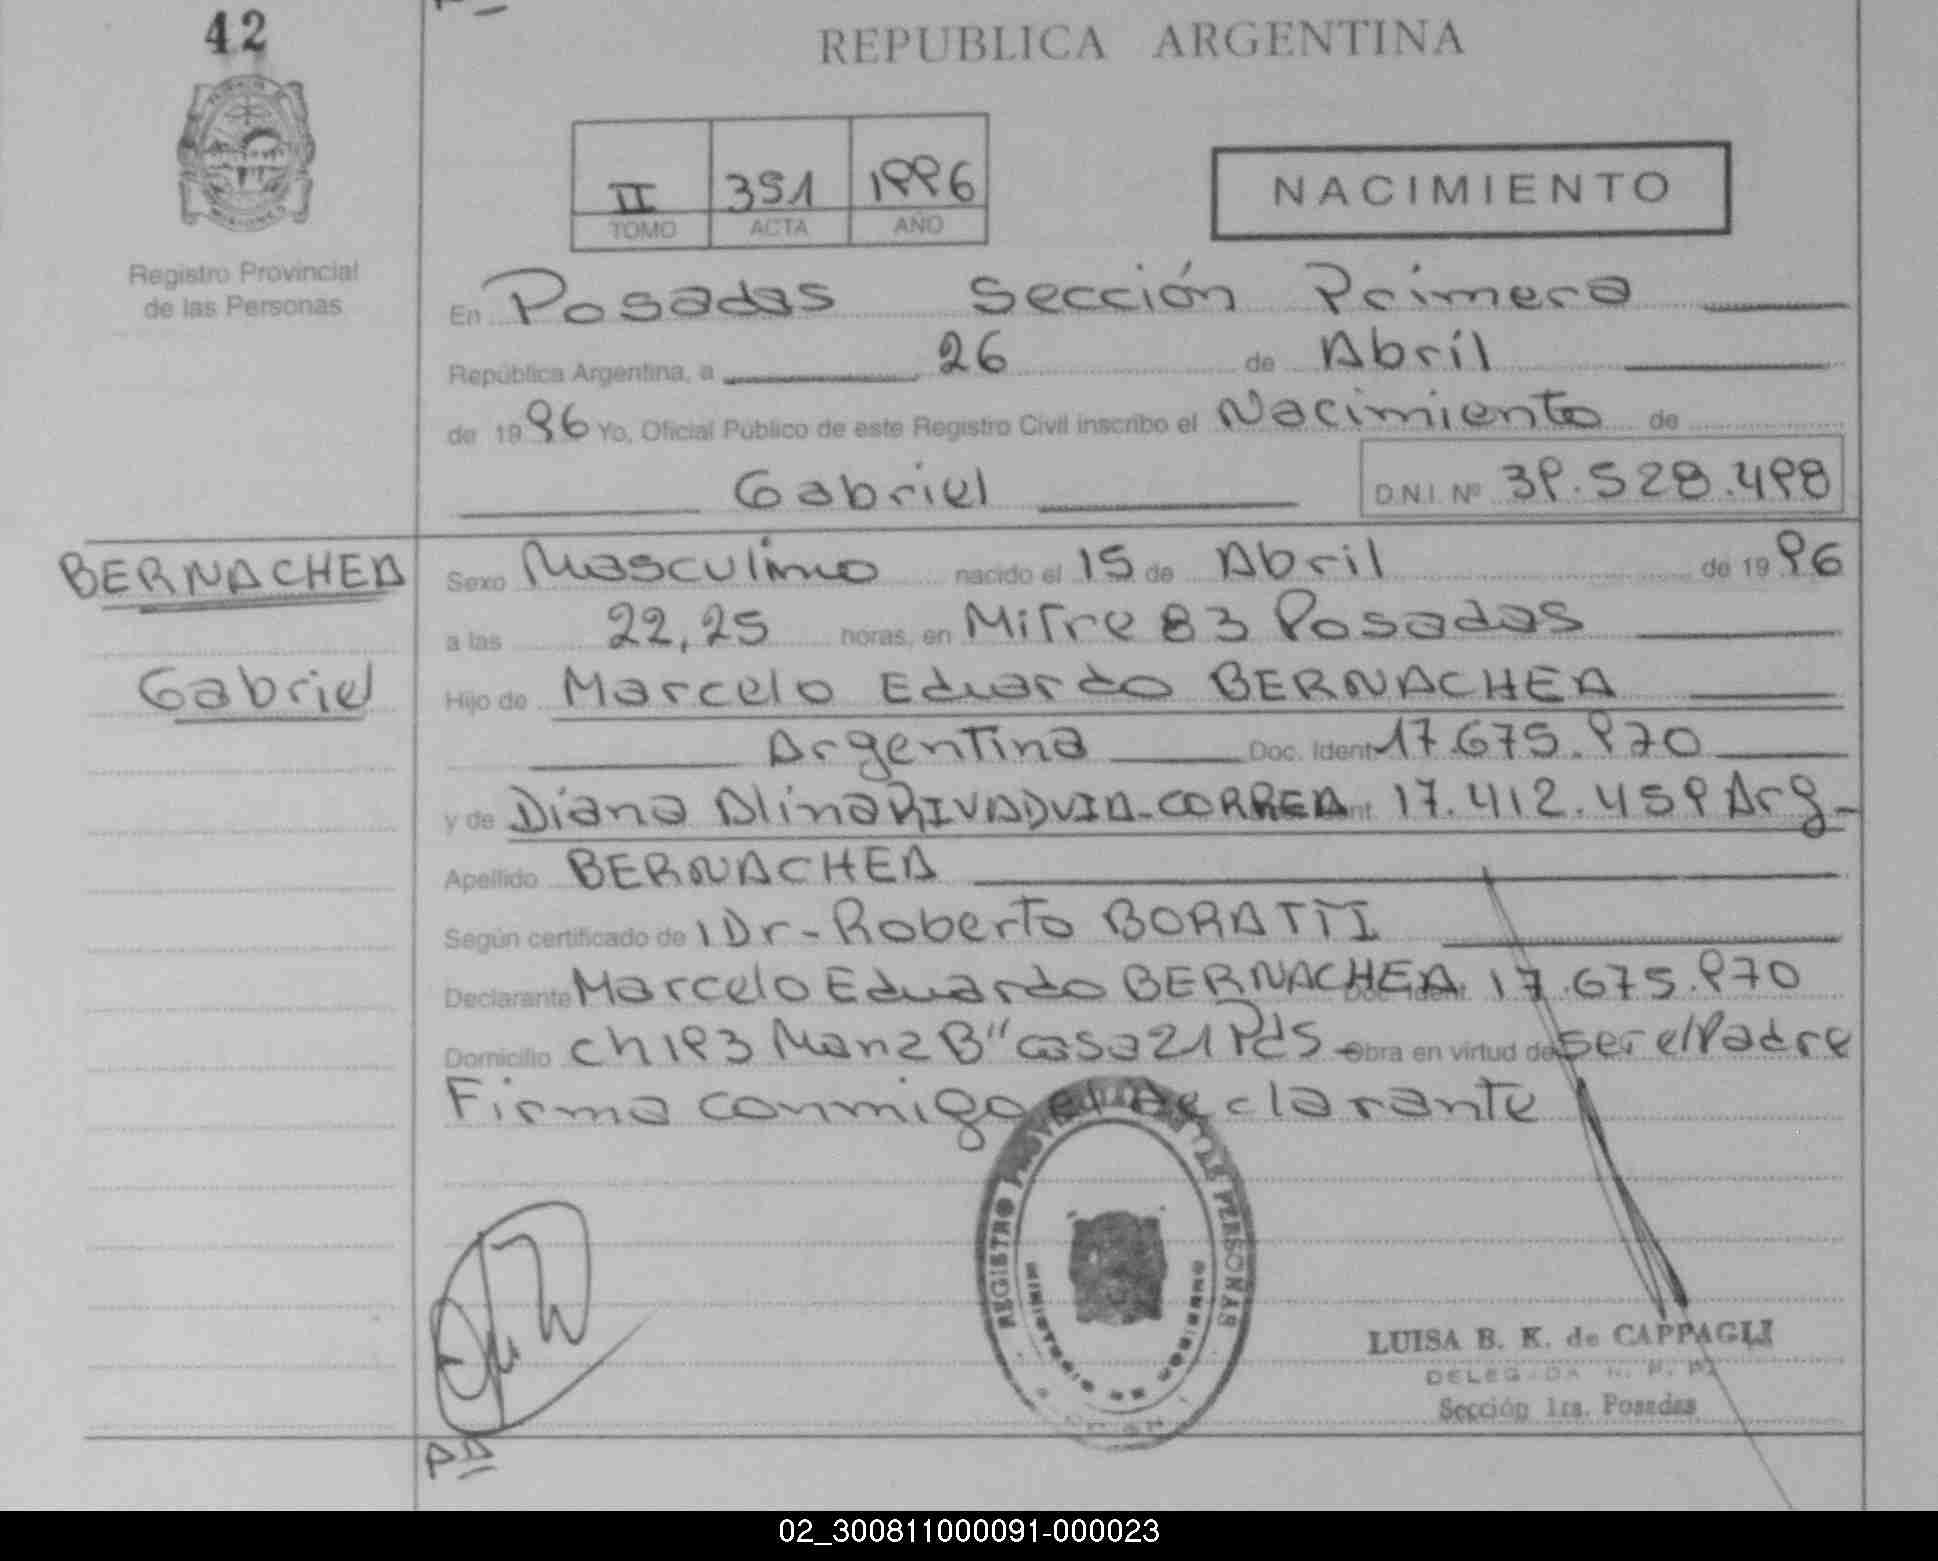 42
REPUBLICA ARGENTINA
II 351 1996
TOMO ACTA AÑO
NACIMIENTO
Registro Provincial
de las Personas
En Posadas Sección Primera
República Argentina, a 26 de Abril
de 1996 Yo, Oficial Público de este Registro Civil inscribo el Nacimiento de
Gabriel D.N.I. Nº 39.528.498
BERNACHEA
Gabriel
Sexo Masculino nacido el 15 de Abril de 1996
a las 22,25 horas, en Mitre 83 Posadas
Hijo de Marcelo Eduardo BERNACHEA
Argentina Doc. Ident 17.675.970
y de Diana Alina RIVADVIA-CORREA 17.412.459 Arg-
Apellido BERNACHEA
Según certificado de 1 Dr- Roberto BORATTI
Declarante Marcelo Eduardo BERNACHEA Doc. Ident. 17.675.970
Domicilio ch 193 Manz B" casa 21 Pds - Obra en virtud de ser el Padre
Firma conmigo el declarante
REGISTRO PROVINCIAL DE LAS PERSONAS
MINISTERIO DE GOBIERNO
LUISA B. K. de CAPPAGLI
DELEGADA R. P. P.
Sección 1ra. Posadas
02_300811000091-000023